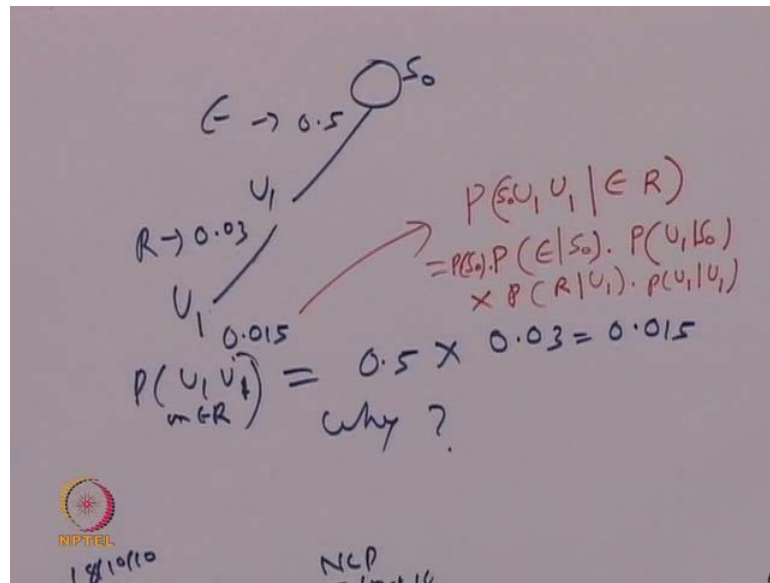 S₀
∈ → 0.5
U₁
R → 0.03
U₁
0.015
P(S₀U₁ U₁ | ∈ R)
= P(S₀).P(∈|S₀). P(U₁|S₀)
× P(R|U₁). P(U₁|U₁)
P(U₁ U₁) = 0.5 × 0.03 = 0.015
on ∈R
Why ?
NPTEL
NLP